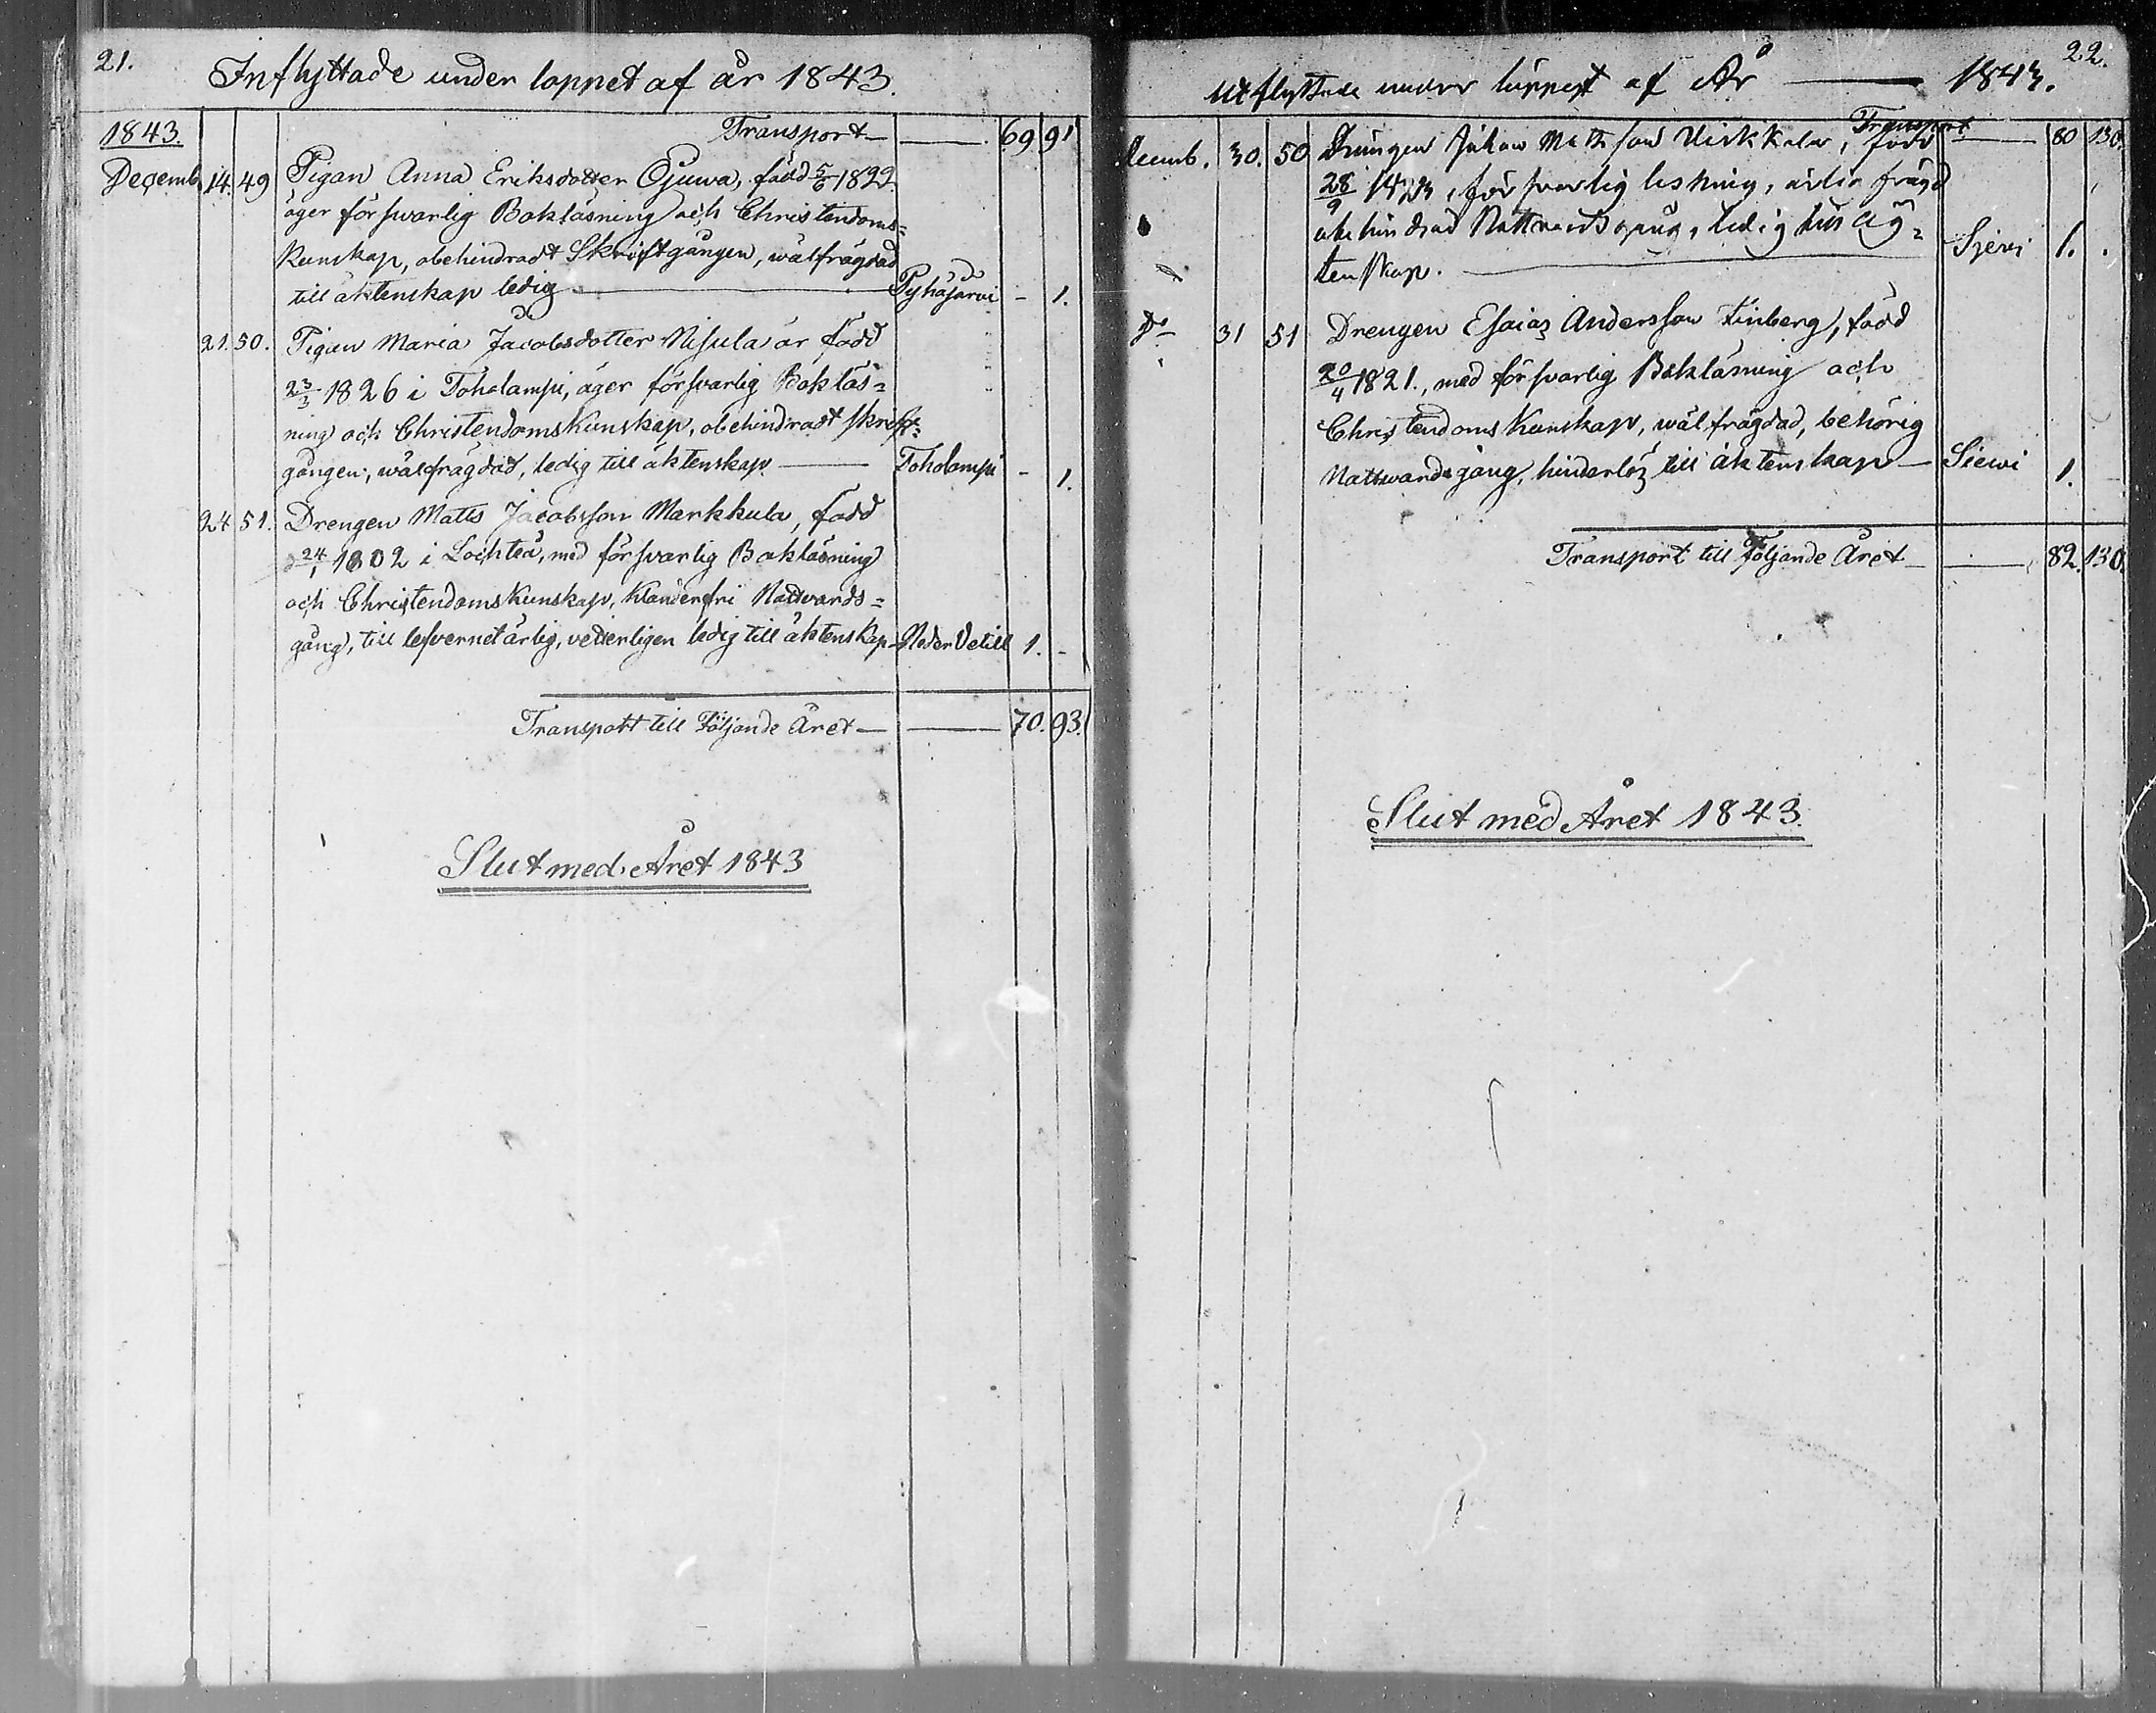 21.
Inflyttade under loppet af år 1843.
1843. Transport — 69 91
Decemb. 14. 49 Pigan Anna Eriksdotter Ojuwa, född 5/6 1822
äger försvarlig Bokläsning och Christendoms=
Kunskap, obehindradt Skriftgången, wälfrägdad
till äktenskap ledig — Pyhäjärvi - 1.
21. 50. Pigan Maria Jacobsdotter Nisula är född
23/3 1826 i Toholampi, äger försvarlig Bokläs=
ning och Christendomskunskap, obehindradt skrift=
gången, wälfrägdad, ledig till äktenskap — Toholampi - 1.
24 51. Drengen Matts Jacobsson Markkula, född
24/1 1802 i Lochteå, med försvarlig Bokläsning
och Christendomskunskap, Klanderfri Nattvards=
gång, till lefvernet ärlig, vetterligen ledig till äktenskap Neder Vetill 1. -
Transport till Följande Året — 70. 93.
Slut med Året 1843
22.
Utflyttade under loppet af År — 1843.
Transport — 80 130.
Decemb. 30. 50 Drängen Johan Mattsson, född
28/9, försvarlig läsning, ärlig frägd
obehindrad Nattvardsgång, ledig till äg=
tenskap. — Sjevi 1. .
Do 31 51 Drengen Esaias Andersson Finberg, född
20/4 1821., med försvarlig Bokläsning och
Christendoms Kunskap, wälfrägdad, behörig
Nattwardsgång, hinderlös till äktenskap — Siewi 1.
Transport till Följande Året — 82. 130.
Slut med Året 1843.